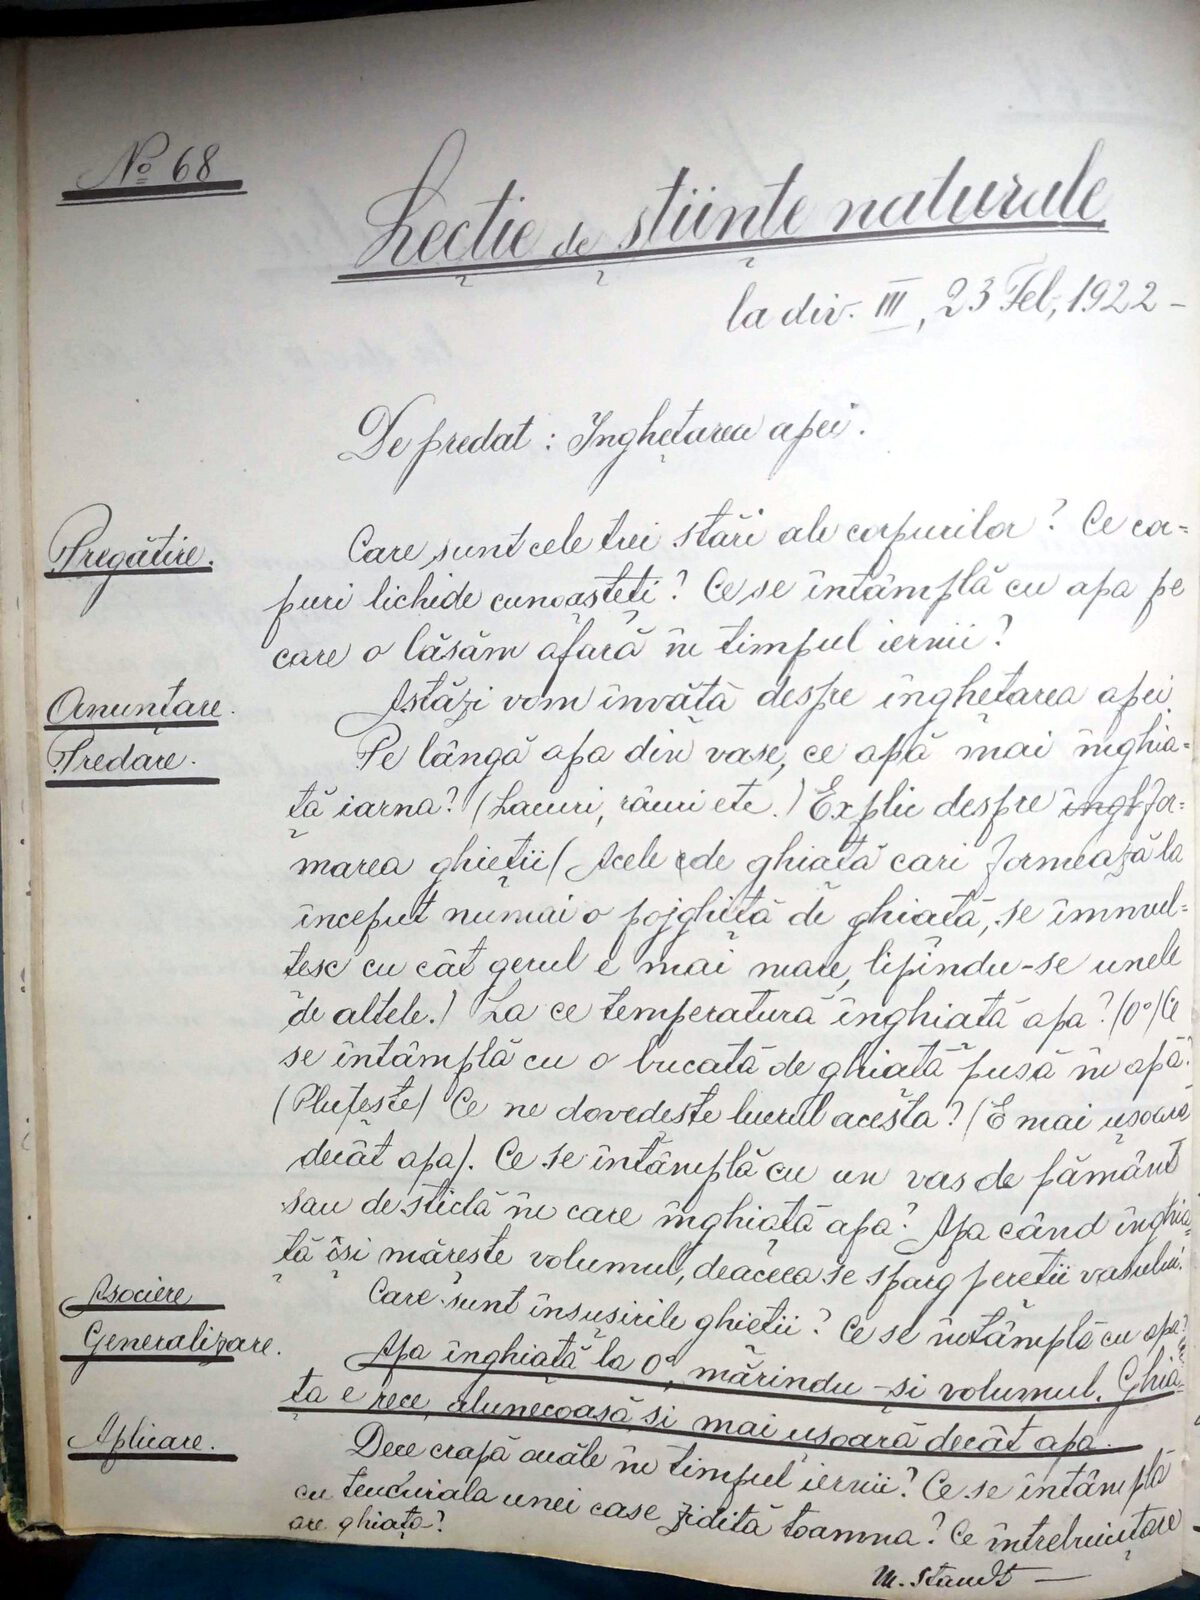 No 68
Lecție de științe naturale
la div. III, 23 Feb, 1922 -
De predat : Inghețarea apei.
Pregătire.
Care sunt cele trei stări ale corpurilor? Ce cor=
puri lichide cunoașteți? Ce se întâmplă cu apa pe
care o lăsăm afară în timpul iernii?
Anunțare.
Astăzi vom învăță despre înghețarea apei.
Predare.
Pe lângă apa din vase, ce apă mai înghia=
ță iarna? (Lacuri, râuri etc.) Explic despre ingh for=
marea ghieții (Acele de ghiață cari formează la
început numai o pojghiță de ghiață, se înmul=
țesc cu cât gerul e mai mare, lipindu-se unele
de altele.) La ce temperatură înghiață apa? (0°) Ce
se întâmplă cu o bucată de ghiață pusă în apă?
(Plutește) Ce ne dovedește lucrul acesta? (E mai ușoara
decât apa). Ce se întâmplă cu un vas de pământ
sau de sticlă în care înghiață apa? Apa când înghia=
ță își mărește volumul, deaceea se sparg pereții vasului.
Asociere
Care sunt însușirile ghieții? Ce se întâmplă cu apa?
Generalizare.
Apa înghiață la 0°, mărindu-și volumul. Ghia=
ța e rece, alunecoasă și mai ușoară decât apa.
Aplicare.
Dece crapă ouăle în timpul iernii? Ce se întâmplă
cu tencuiala unei case zidită toamna? Ce întrebuințare
are ghiața?
M. Staudt